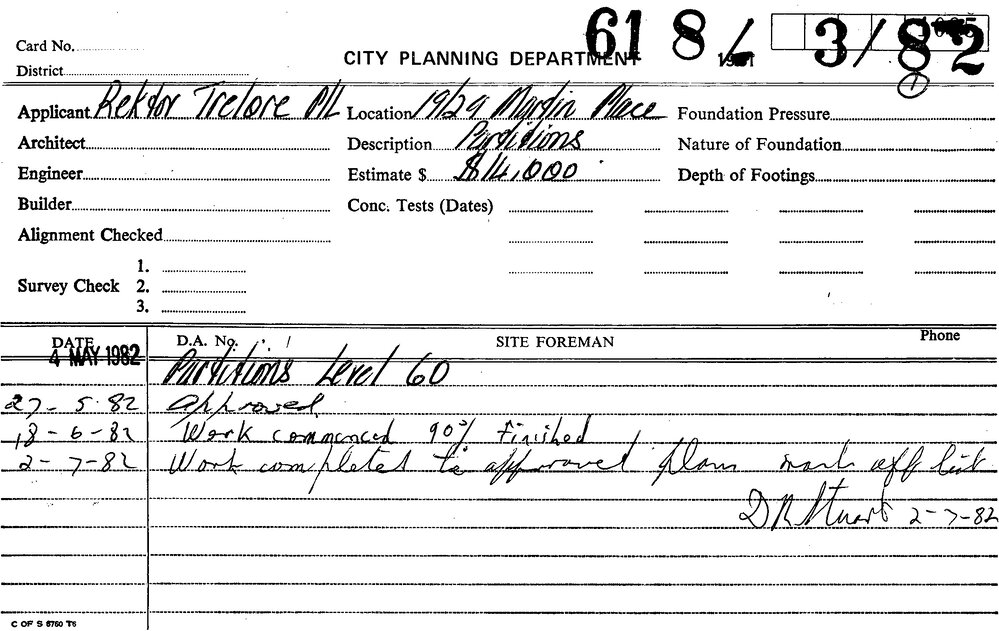 618/ 3/82
Card No.
CITY PLANNING DEPARTMENT
District
1
Applicant Rektor Trelore P/L Location 19/29 Martin Place Foundation Pressure
Architect Description Partitions Nature of Foundation
Engineer Estimate $ $14,000 Depth of Footings
Builder Conc. Tests (Dates)
Alignment Checked
1.
Survey Check 2.
3.
DATE D.A. No. SITE FOREMAN Phone
4 MAY 1982 Partitions Level 60
27-5-82 approved
18-6-82 Work commenced 90% finished
2-7-82 Work completed to approved plans mark off list
D R Stuart 2-7-82
C OF S 8760 T6